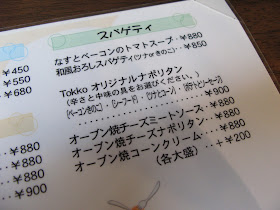 スパゲティ
なすとベーコンのトマトスープ・¥880
和風おろしスパゲティ(ツナorきのこ)・¥850
Tokko オリジナルナポリタン
(辛さと中味の具をお選びください。)
(ベーコンきのこ)・(シーフード)・(ツナとコーン)・(ポテトとソーセージ)
¥900
オーブン焼チーズミートソース・¥880
オーブン焼チーズナポリタン・¥880
オーブン焼コーンクリーム・¥880
(各大盛) ・+¥200
¥450
¥550
¥680
¥880
¥880
¥880
¥900